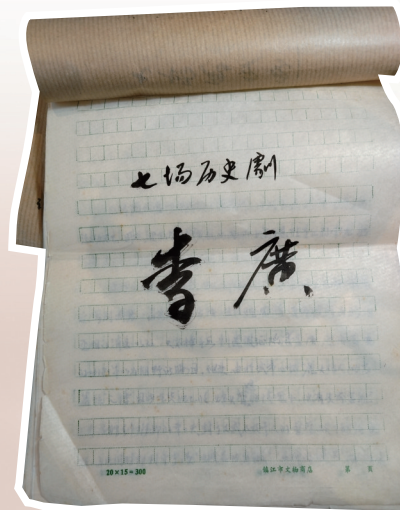 七场历史剧
李廣
20×15=300 镇江市文物商店 第 页